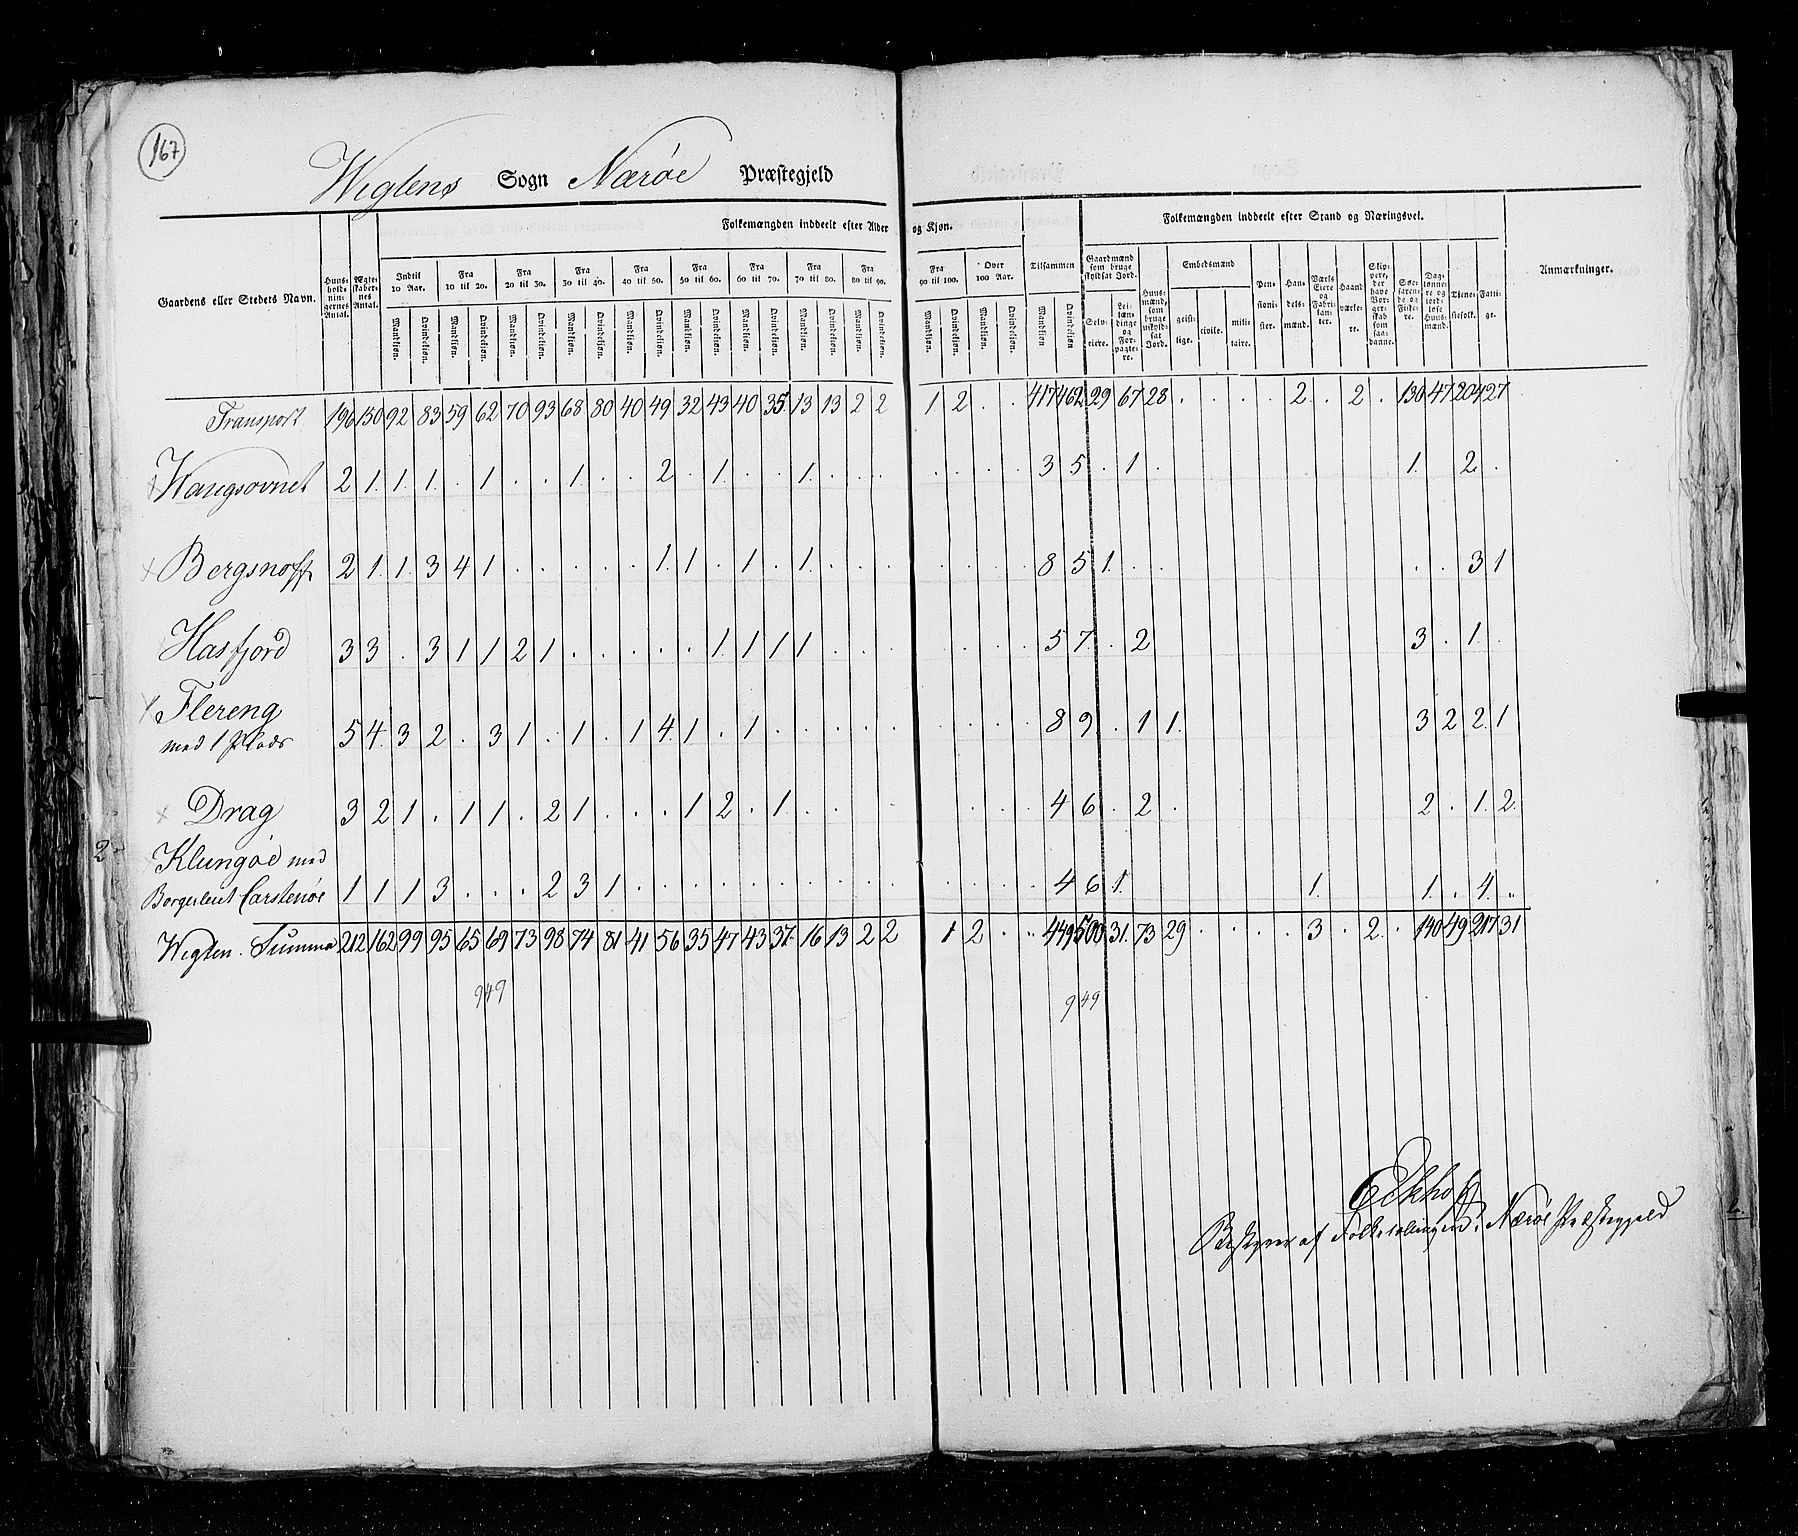 167
Wigtens Sogn Nærøe Præstegjeld
Folkemængden inddeelt efter Alder og Kjøn.
Folkemængden inddeelt efter Stand og Næringsvei.
Gaardens eller Stedets Navn.
Huusholdningernes Antal.
Ægteskabernes Antal.
Indtil 10 Aar. Fra 10 til 20. Fra 20 til 30. Fra 30 til 40. Fra 40 til 50. Fra 50 til 60. Fra 60 til 70. Fra 70 til 80. Fra 80 til 90. Fra 90 til 100. Over 100 Aar. Tilsammen
Mandkjøn. Qvindekjøn.
Gaardmænd som bruge skyldsat Jord.
Selveiere. Leilændinge og Forpagtere.
Huusmænd, som bruge uskyldsat Jord.
Embedsmænd
geistlige. civile. militaire.
Pensionister.
Handelsmænd.
Værks Eiere og Fabrikanter.
Haandværkere.
Skippere, der have Borgerskab som saadanne.
Søefarende og Fiskere.
Daglønnere og jordløse Huusmænd.
Tjenestefolk.
Fattige.
Anmærkninger.
Transport 196 150 92 83 59 62 70 93 68 80 40 49 32 43 40 35 13 13 2 2 1 2 . . 417 462 29 67 28 . . . . 2 . 2 . 130 47 204 27
Wangsovnet 2 1 1 1 . 1 . . 1 . . 2 . 1 . . 1 . . . . . . . 3 5 . 1 . 1 . 2 .
Bergsnoff 2 1 1 3 4 1 . . . . . 1 1 . 1 . 1 . . . . . . . 8 5 1 . . . . 3 1
Hasfjord 3 3 . 3 1 1 2 1 . . . . . 1 1 1 1 . . . . . . . 5 7 . 2 3 . 1 .
Flereng
med 1 Plads 5 4 3 2 . 3 1 . 1 . 1 4 1 . 1 . . . . . . . . . 8 9 . 1 1 3 2 2 1
Drag 3 2 1 . 1 1 . 2 1 . . . 1 2 . 1 . . . . . . . . 4 6 . 2 . 2 . 1 2
2
Klungøe med
Borgerleut Carstenøe 1 1 1 3 . . . 2 3 1 . . . . . . . . . . . . . . 4 6 1 1 1 . 4 "
Wigten. Summa 212 162 99 95 65 69 73 98 74 81 41 56 35 47 43 37 16 13 2 2 1 2 . " 449 500 31 73 29 . . . . 3 . 2 . 140 49 217 31
949 949
Eckhoff
Bestyrer af Folketællingen i Nærøe Præstegjeld